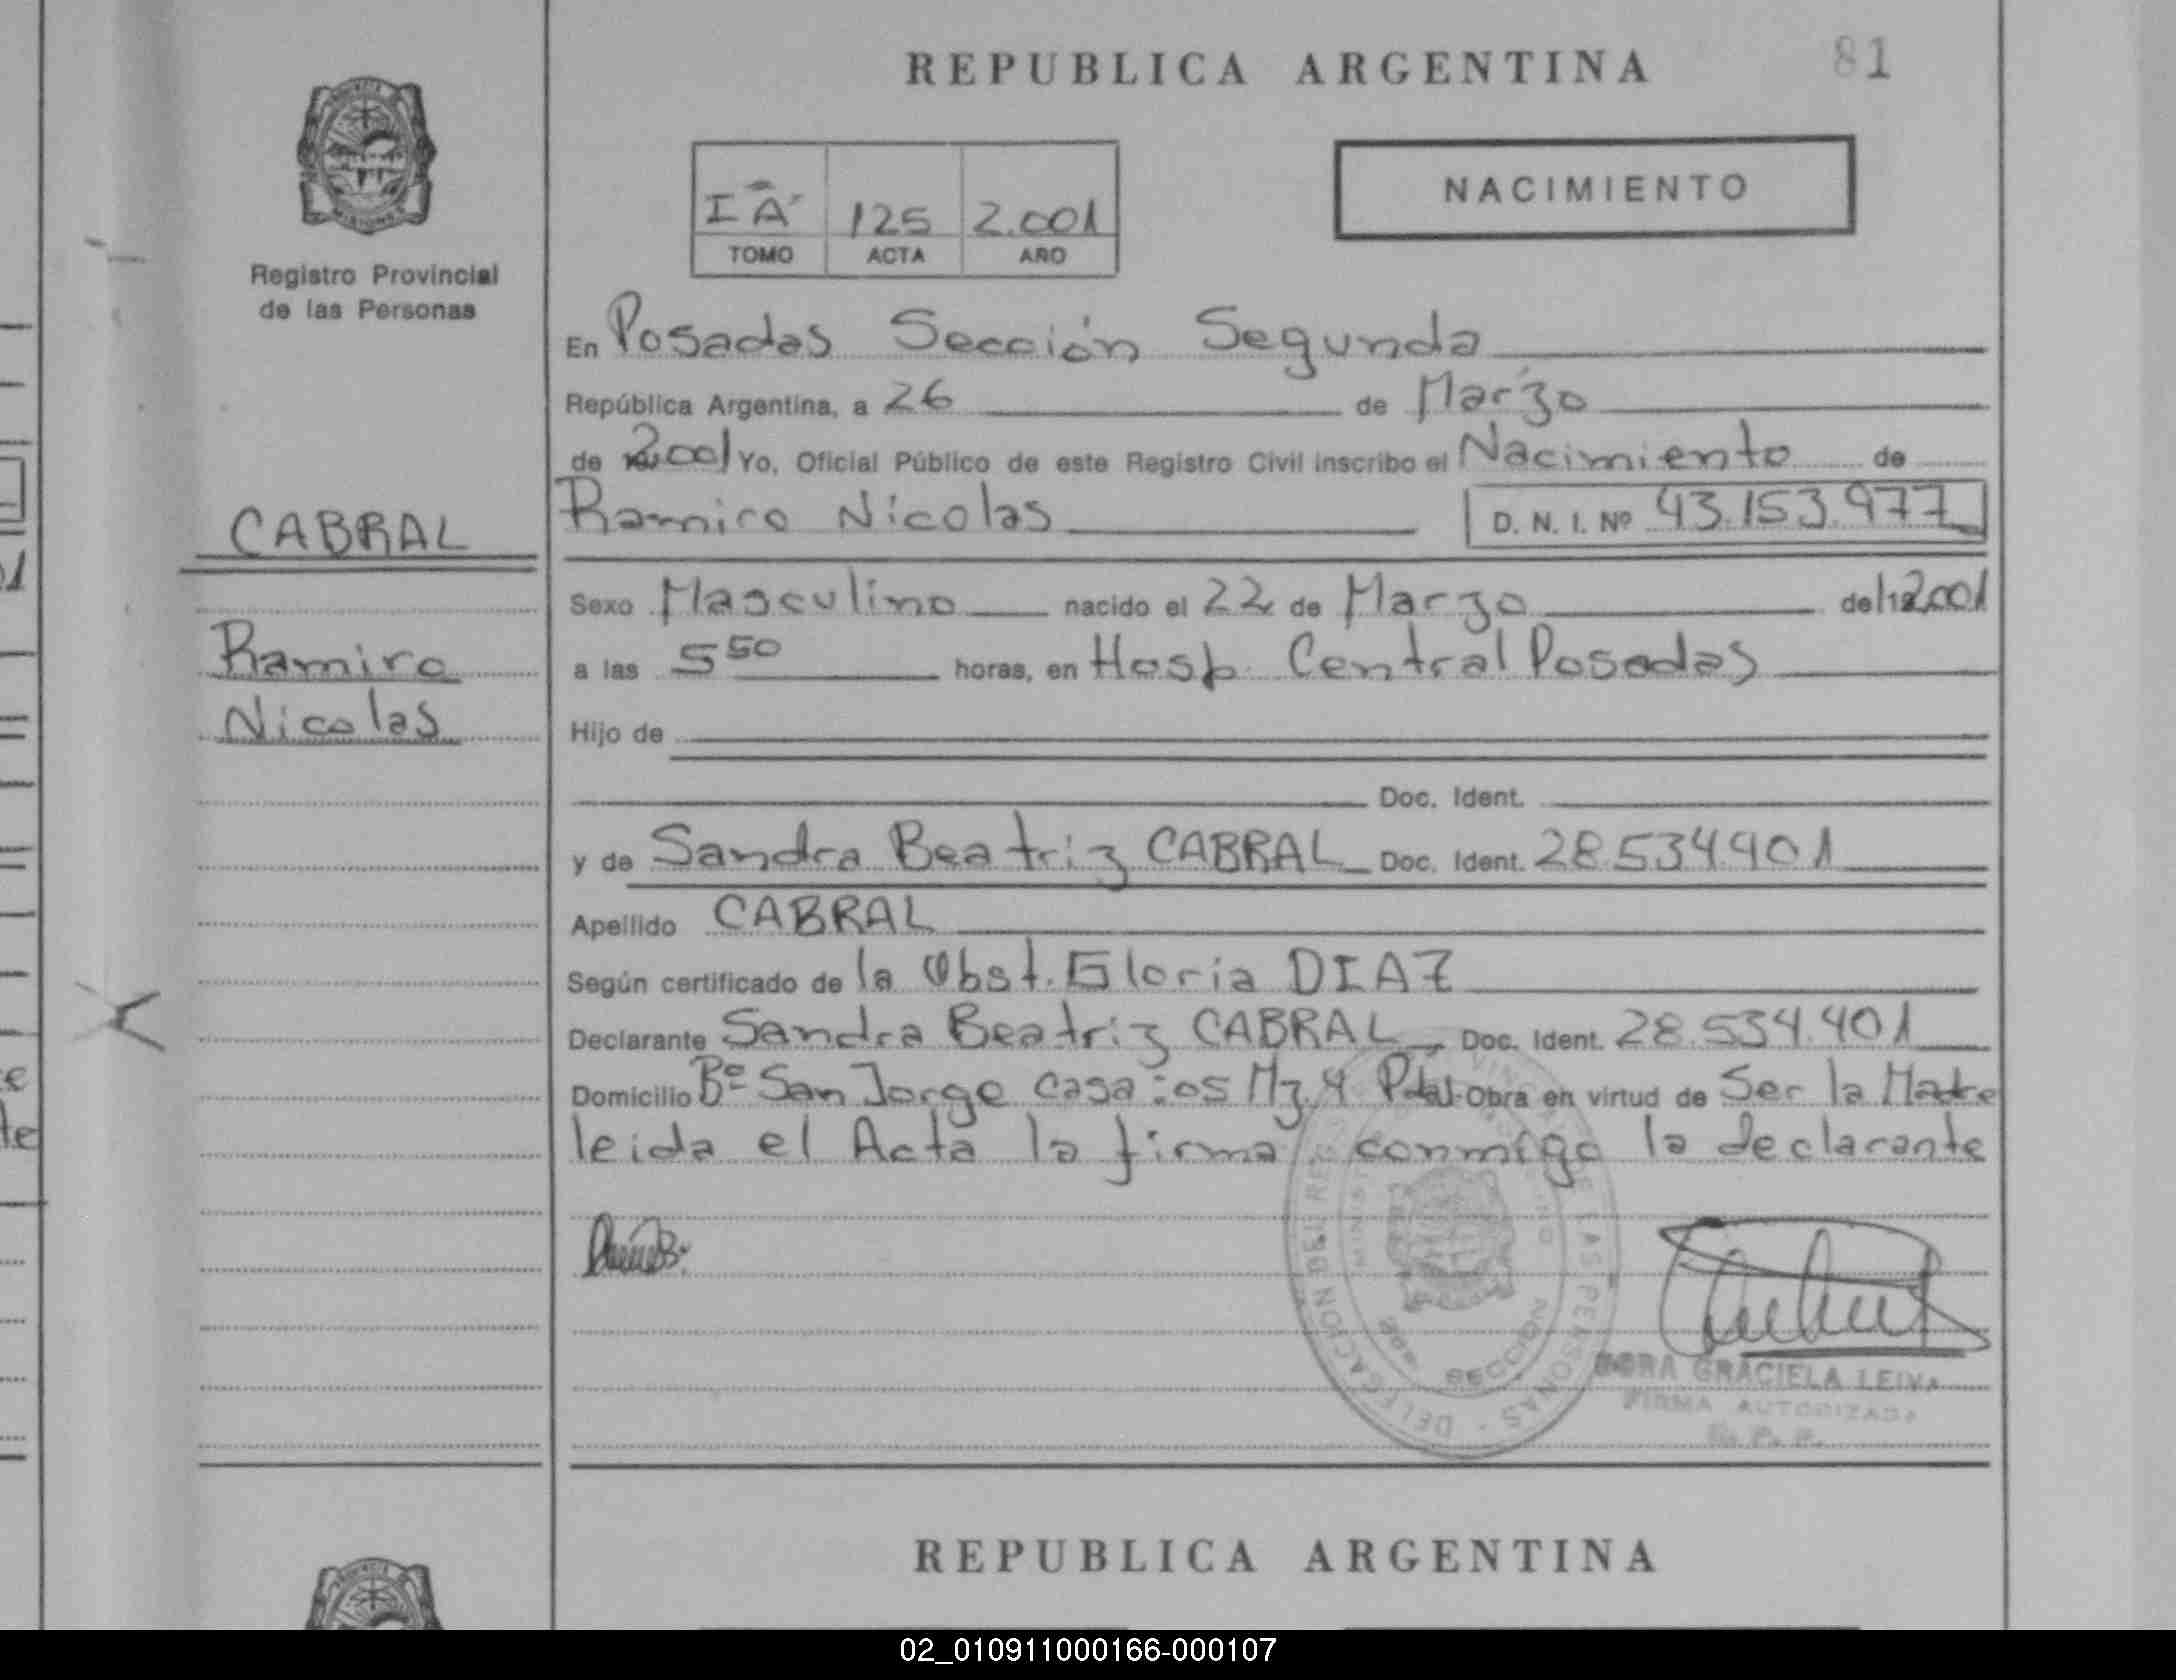 REPUBLICA ARGENTINA
81
I A
125
2.001
TOMO
ACTA
AÑO
NACIMIENTO
Registro Provincial
de las Personas
En Posadas Sección Segunda
República Argentina, a 26 de Marzo
de 2001 Yo, Oficial Público de este Registro Civil inscribo el Nacimiento de
Ramiro Nicolas D. N. I. Nº 43.153.977
CABRAL
Ramiro
Nicolas
Sexo Masculino nacido el 22 de Marzo de 2001
a las 5 50 horas, en Hosp. Central Posadas
Hijo de
Doc. Ident.
y de Sandra Beatriz CABRAL Doc. Ident. 28.534.401
Apellido CABRAL
Según certificado de la Obst. Gloria DIAZ
Declarante Sandra Beatriz CABRAL Doc. Ident. 28.534.401
Domicilio Bº San Jorge casa :05 Mz.4 Obra en virtud de Ser la Madre
leida el Acta la firma conmigo la declarante
DELEGACION DEL REG PROVINCIAL DE LAS PERSONAS
SECCION
GRACIELA LEIVA
FIRMA AUTORIZADA
REPUBLICA ARGENTINA
02_010911000166-000107